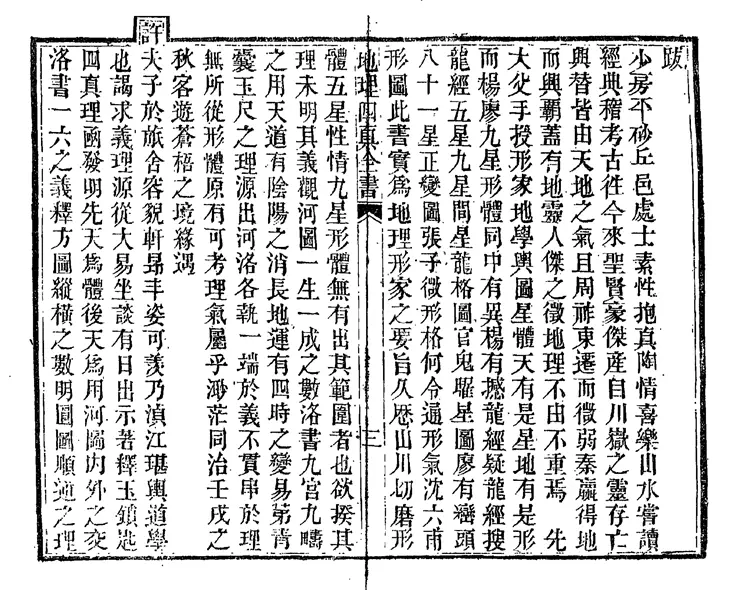 跋
少房平砂丘邑處士素性抱真陶情喜樂山水嘗讀
經典稽考古徃今來聖賢豪傑産自川嶽之靈存亡
與替皆由天地之氣且周祚東遷而微弱秦嬴得地
而興覇蓋有地靈人傑之徵地理不由不重焉 先
大父手授形家地學輿圖星體天有是星地有是形
而楊廖九星形體同中有異楊有撼龍經疑龍經搜
龍經五星九星間星龍格圖官鬼曜星圖廖有巒頭
八十一星正變圖張子微形格何令通形氣沈六甫
形圖此書實爲地理形家之要旨久歴山川切磨形
地理四真全書 三
體五星性情九星形體無有出其範圍者也欲揆其
理未明其義觀河圖一生一成之數洛書九宮九疇
之用天道有陰陽之消長地運有四時之變易第靑
囊玉尺之理源出河洛各執一端於義不貫串於理
無所從形體原有可考理氣屬乎渺茫同治壬戌之
秋客遊蒼梧之境緣遇
許
夫子於旅舍容貌軒昻丰姿可羨乃滇江堪輿道學
也謁求義理源從大易坐談有日出示著釋玉鎖匙
四真理函發明先天爲體後天爲用河圖内外之交
洛書一六之義釋方圖縱橫之數明圓圖順逆之理